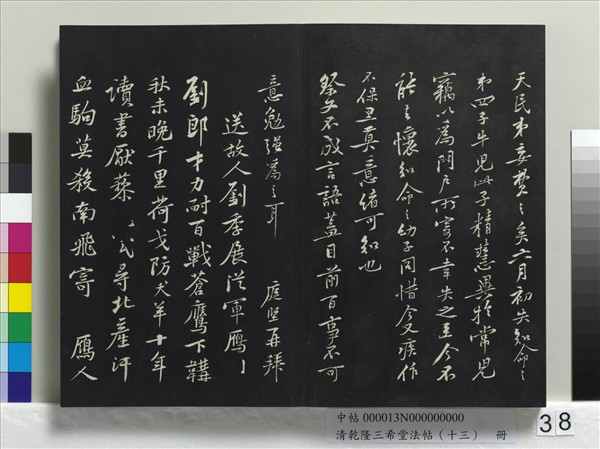 天民知命〻
第四子牛兒此子精慧異於常兒
竊以為門戶所寄不幸失之至今不
能去懷知命〻幼子同惜疾作
不保意緒可知也
祭文不成言語蓋目前百事不可
意勉強為之耳 庭堅再拜
送故人劉季展從軍鴈門
劉郎才力耐百戰蒼鷹下韝
秋未晚千里荷戈防犬羊十年
讀書厭藜尋北產汗
血駒莫殺南飛寄鴈人
中帖 000013N000000000
清乾隆三希堂法帖（十三） 冊
38